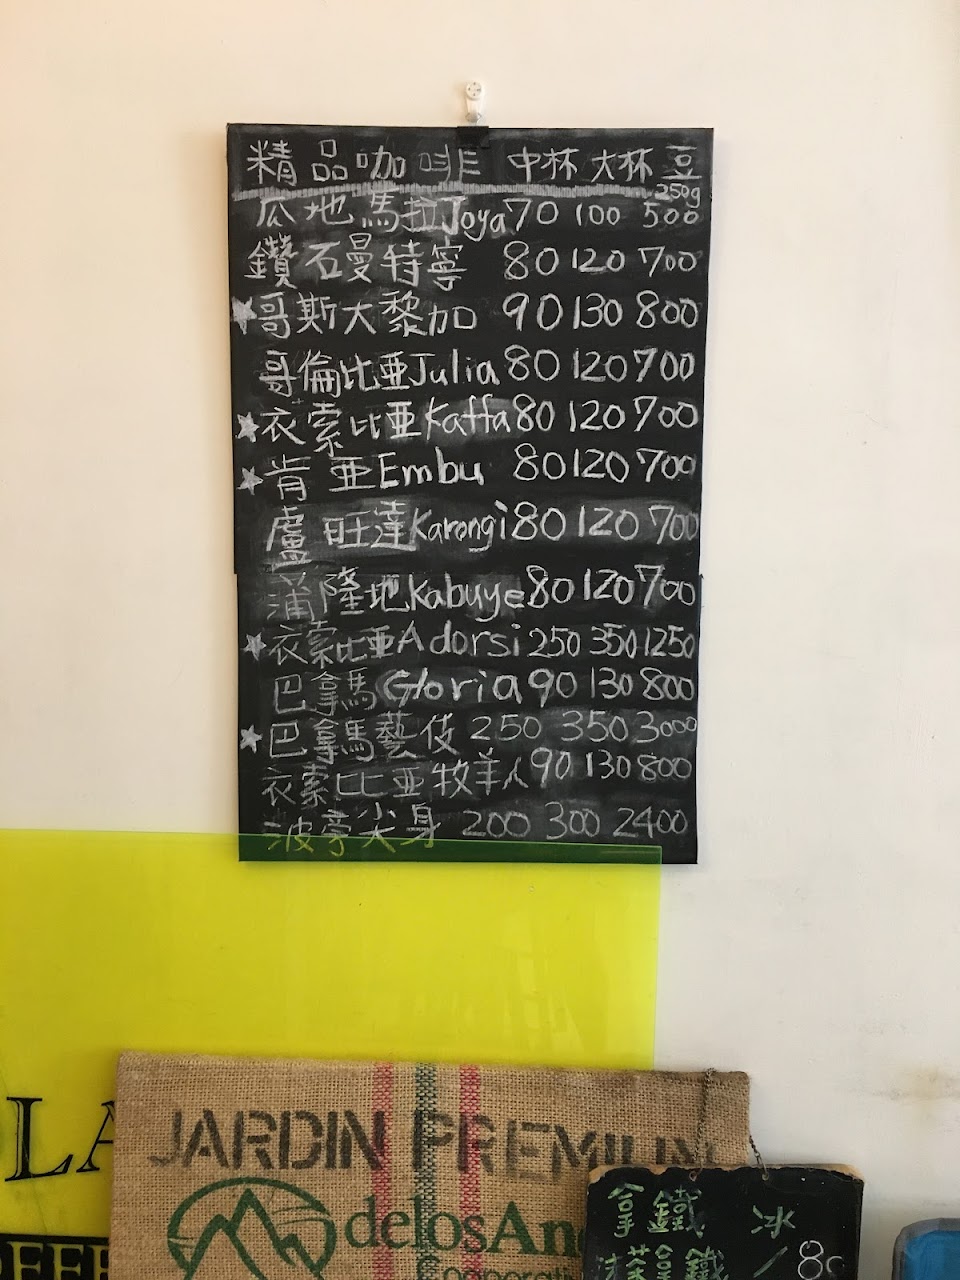 精品咖啡 中杯 大杯 豆
250g
瓜地馬拉Joya 70 100 500
鑽石曼特寧 80 120 700
★哥斯大黎加 90 130 800
哥倫比亞Julia 80 120 700
★衣索比亞Kaffa 80 120 700
★肯亞Embu 80 120 700
盧旺達Karongi 80 120 700
蒲隆地Kabuye 80 120 700
★衣索比亞Adorsi 250 350 1250
巴拿馬Gloria 90 130 800
★巴拿馬藝伎 250 350 3000
衣索比亞牧羊人 90 130 800
波旁尖身 200 300 2400
LA
JARDIN PREMIUM
delosAn
拿鐵 冰
80